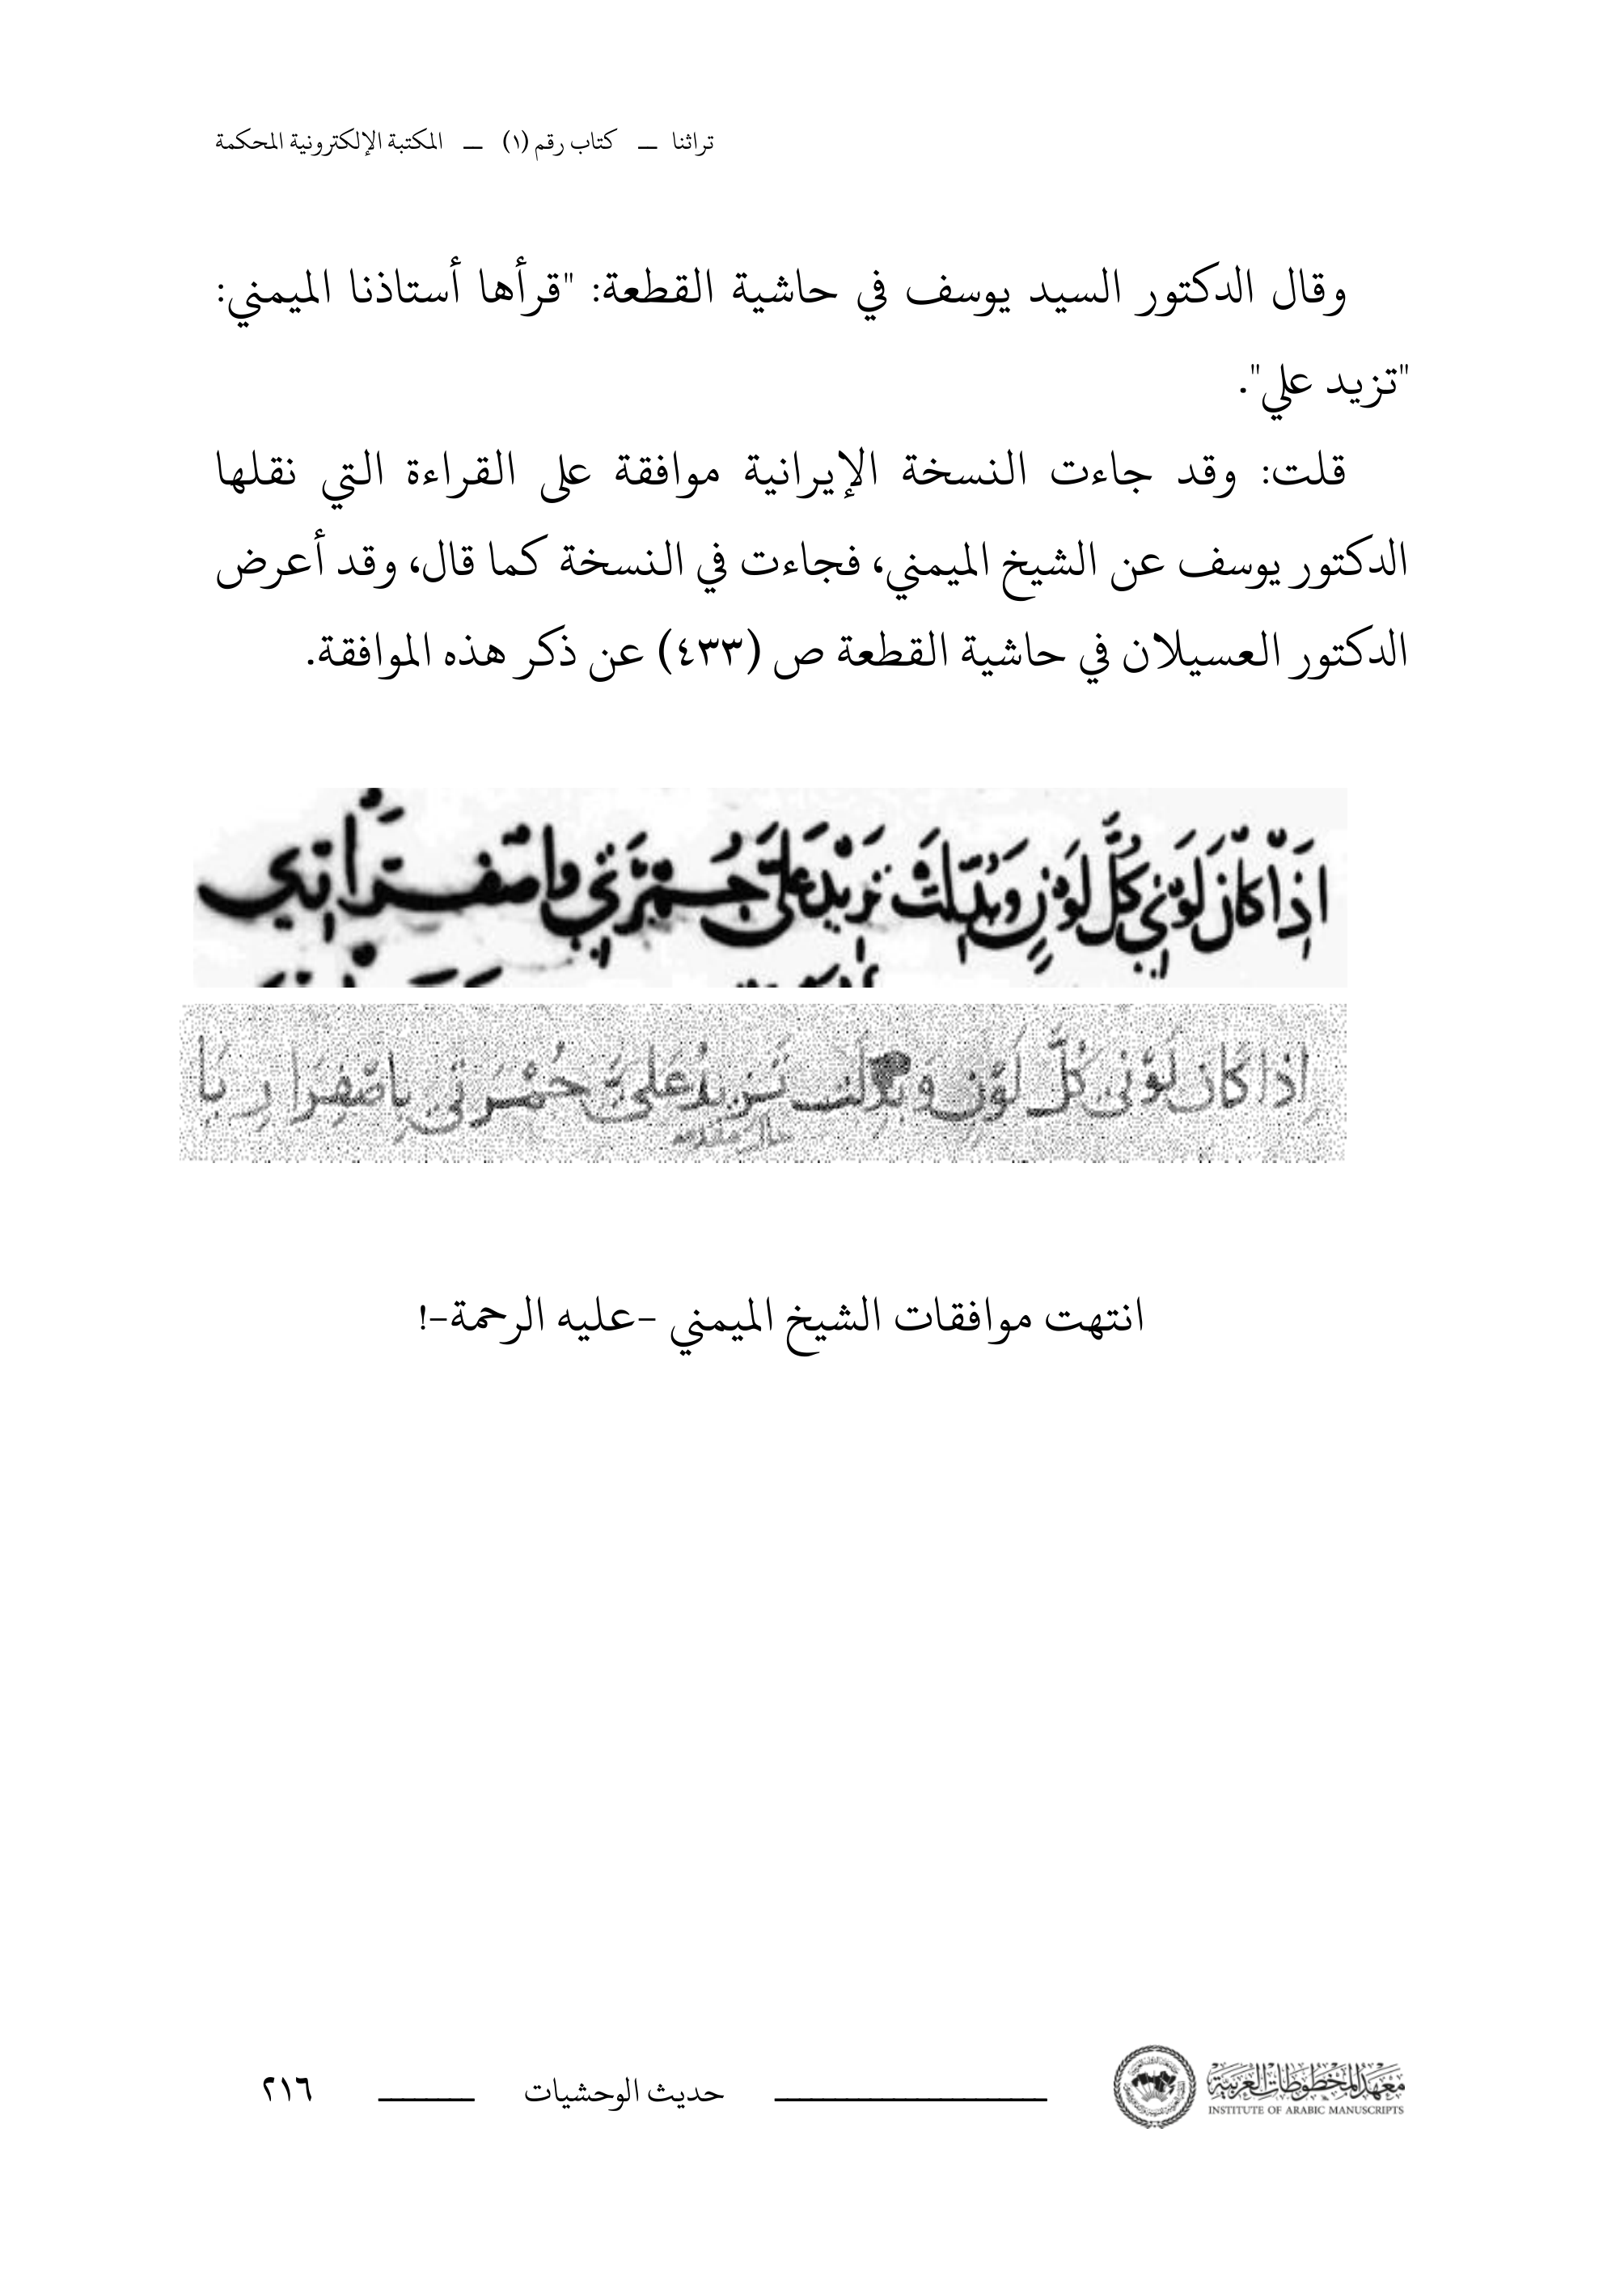 تراثنا ـــ كتاب رقم (١) ـــ المكتبة الإلكترونية المحكمة
وقال الدكتور السيد يوسف في حاشية القطعة: "قرأها أستاذنا الميمني:
"تزيد علي".
قلت: وقد جاءت النسخة الإيرانية موافقة على القراءة التي نقلها
الدكتور يوسف عن الشيخ الميمني، فجاءت في النسخة كما قال، وقد أعرض
الدكتور العسيلان في حاشية القطعة ص (٤٣٣) عن ذكر هذه الموافقة.
اذا كان لوني كل لون وبدلت تزيد على حمرتي واصفراني
إذا كان لوني كل لون وبدلت تزيد علي حمرتي باصفراريا
انتهت موافقات الشيخ الميمني -عليه الرحمة-!
معهد المخطوطات العربية
INSTITUTE OF ARABIC MANUSCRIPTS
حديث الوحشيات
٢١٦